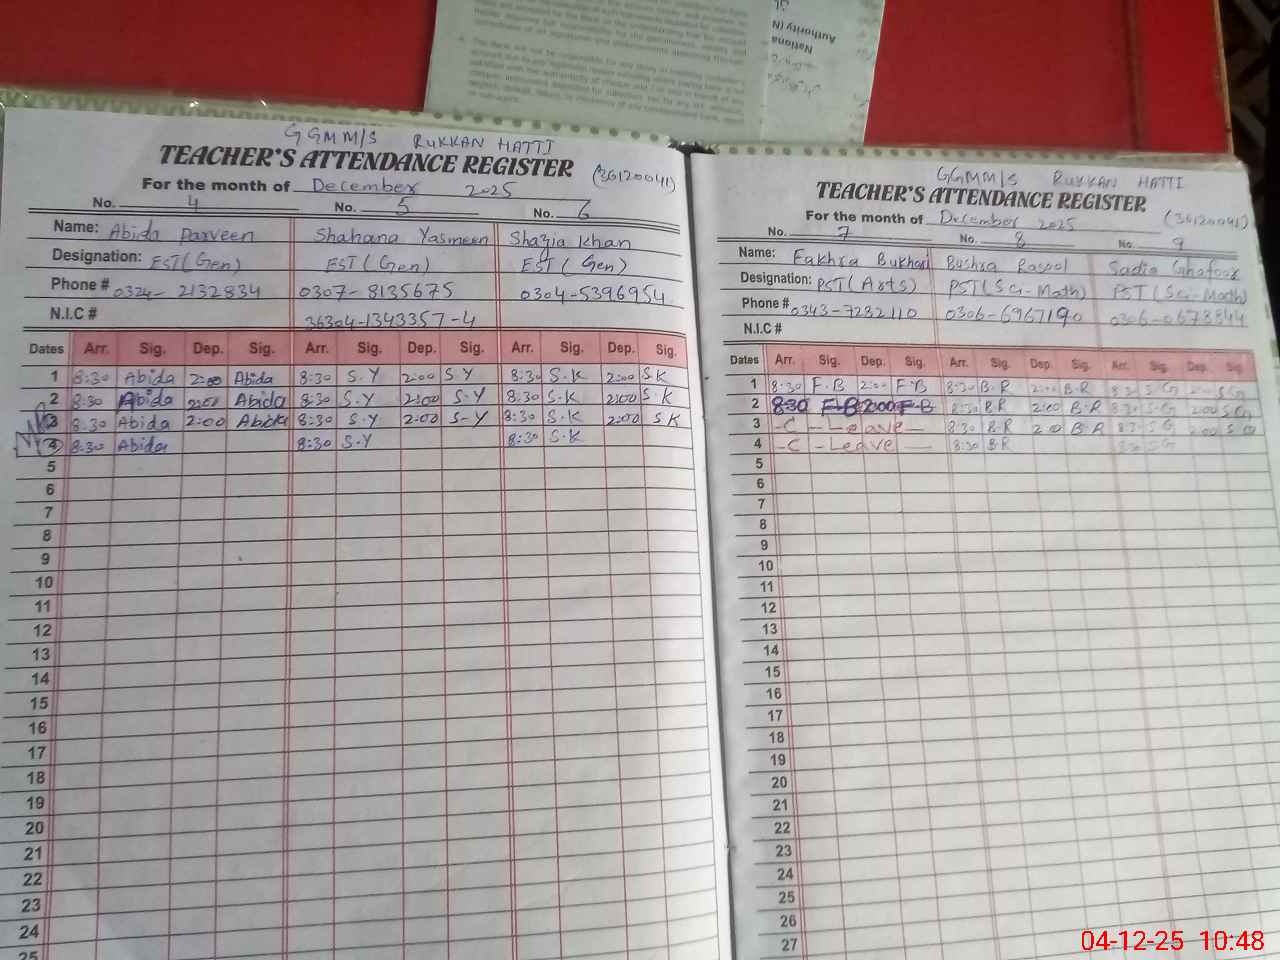 National
Authority (N
GGMM/S RUKKAN HATTI
TEACHER'S ATTENDANCE REGISTER
(36120041)
For the month of December 2025
No. 4 No. 5 No. 6
Name: Abida Parveen Shahana Yasmeen Shazia Khan
Designation: EST (Gen) EST (Gen) EST (Gen)
Phone # 0324-2132834 0307-8135675 0304-5396954
N.I.C # 36304-1343357-4
Dates Arr. Sig. Dep. Sig. Arr. Sig. Dep. Sig. Arr. Sig. Dep. Sig.
1 8:30 Abida 2:00 Abida 8:30 S.Y 2:00 S.Y 8:30 S.K 2:00 S K
2 8:30 Abida 2:00 Abida 8:30 S.Y 2:00 S.Y 8:30 S.K 2:00 S.K
3 8:30 Abida 2:00 Abida 8:30 S.Y 2:00 S-Y 8:30 S.K 2:00 S K
4 8:30 Abida 8:30 S.Y 8:30 S.K
5
6
7
8
9
10
11
12
13
14
15
16
17
18
19
20
21
22
23
24
25
GGMM/S RUKKAN HATTI
TEACHER'S ATTENDANCE REGISTER
For the month of December 2025 (36120041)
No. 7 No. 8 No. 9
Name: Fakhra Bukhari Bushra Rasool Sadia Ghafoor
Designation: PST (Arts) PST (Sci-Math) PST (Sci-Math)
Phone # 0343-7232110 0306-6967190 0306-0678844
N.I.C #
Dates Arr. Sig. Dep. Sig. Arr. Sig. Dep. Sig. Arr. Sig. Dep. Sig.
1 8:30 F.B 2:00 F.B 8:30 B.R 2:00 B.R 8:30 S.G 2:00 S G
2 8:30 F-B 2:00 F-B 8:30 B.R 2:00 B.R 8:30 S.G 2:00 S G
3 -C - Leave - 8:30 B.R 2:00 B.R 8:30 S G 2:00 S G
4 -C - Leave - 8:30 B.R 8:30 S G
5
6
7
8
9
10
11
12
13
14
15
16
17
18
19
20
21
22
23
24
25
26
27
04-12-25 10:48